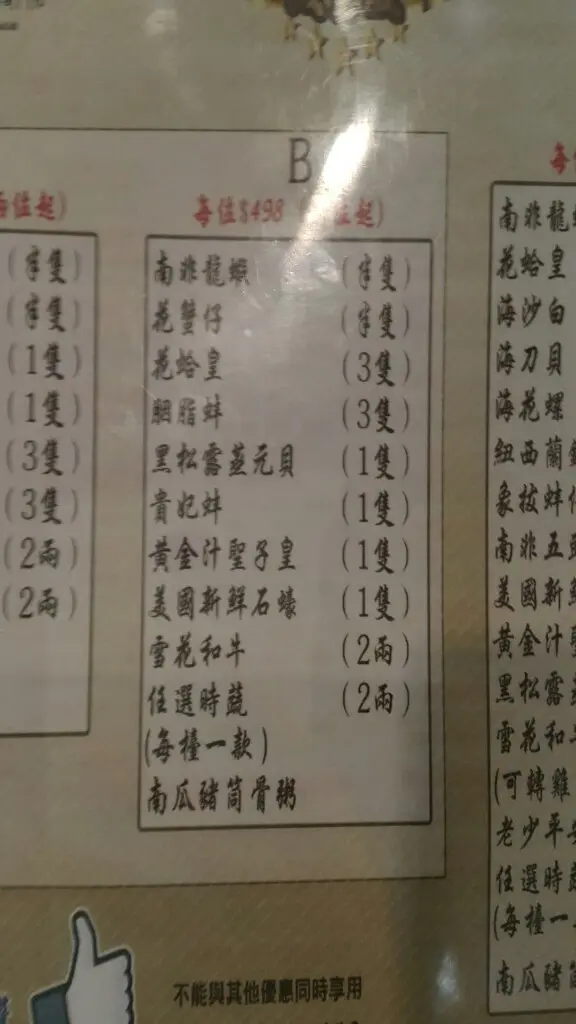 B
每位$498 位起)
南非龍蝦 (半隻)
花蟹仔 (半隻)
花蛤皇 (3隻)
胭脂蚌 (3隻)
黑松露蒸元貝 (1隻)
貴妃蚌 (1隻)
黃金汁聖子皇 (1隻)
美國新鮮石蠔 (1隻)
雪花和牛 (2兩)
任選時蔬 (2兩)
(每檯一款)
南瓜豬筒骨粥
位起)
(半隻)
(半隻)
(1隻)
(1隻)
(3隻)
(3隻)
(2兩)
(2兩)
每
南非龍
花蛤皇
海沙白
海刀貝
海花螺
紐西蘭
象拔蚌
南非五
美國新
黃金汁
黑松露
雪花和
(可轉雞
老少平
任選時
(每檯一
南瓜豬
不能與其他優惠同時享用